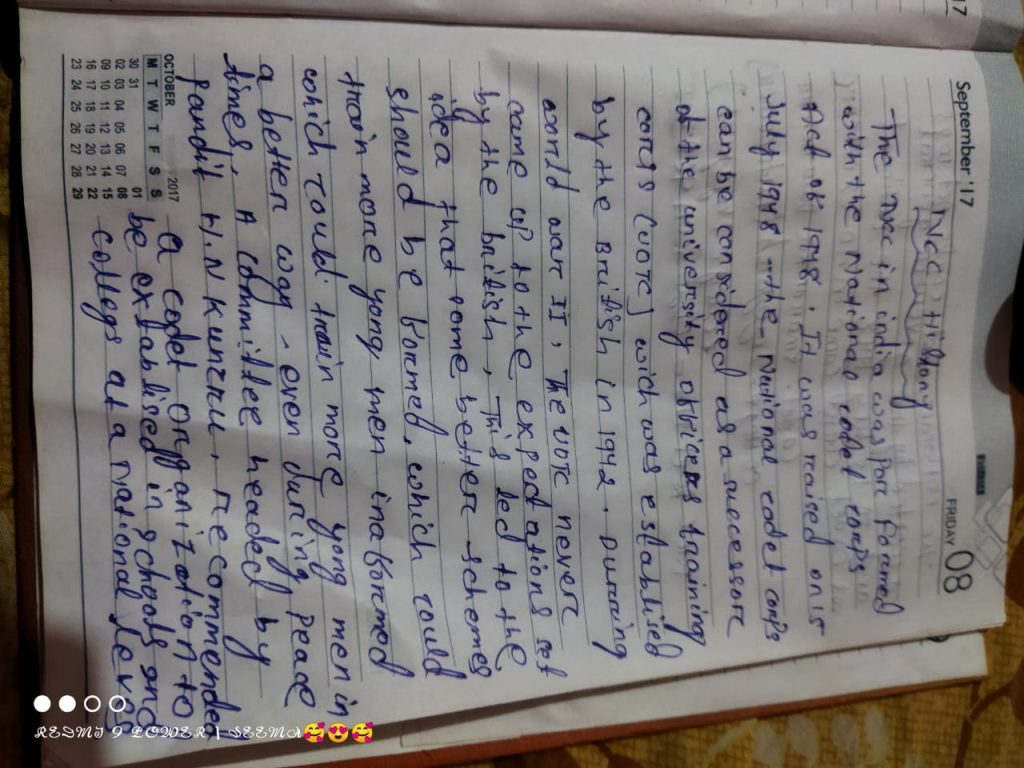 17
September '17
FRIDAY 08
NCC History
The NCC in india was Porc Formed
with the National codet corps
Act of 1948. It was raised on 15
July 1948 the National codet corps
can be considered as a successore
of the university officers training
corcs (UOTC) which was establised
by the British in 1942. Durring
world warr II, The UOTC never
came up to the expectations set
by the british, This led to the
idea that some better schemes
should be formed, which could
train more yong men inafformed
which could train more yong men in
a better way, even during Peace
times, A committee headed by
Pandit H.N KUNZRU, recommended
a codet organization to
be extablised in schools and
colleges at a National level
OCTOBER 2017
M T W T F S S
30 31 01
02 03 04 05 06 07 08
09 10 11 12 13 14 15
16 17 18 19 20 21 22
23 24 25 26 27 28 29
REDMI 9 POWER | SEEMA🥰😍🥰